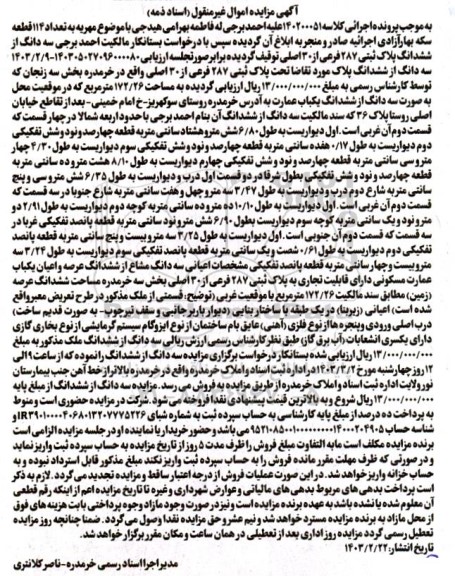 آگهی مزایده اموال غیرمنقول (اسناد ذمه)
به موجب پرونده اجرائی کلاسه ۱۴۰۲۰۰۰۵۱ علیه احمد برجی له فاطمه بهرامی هیدجی با موضوع مهریه به تعداد ۱۱۴ قطعه
سکه بهار آزادی اجرائیه صادر و منجر به ابلاغ آن گردیده سپس با درخواست بستانکار مالکیت احمد برجی سه دانگ از
ششدانگ پلاک ثبتی ۲۸۷ فرعی از ۳۰ اصلی توقیف گردیده برابر صورتجلسه ارزیابی ۱۴۰۳۰۵۰۲۷۰۹۶۰۰۰۰۸۰-۱۴۰۳/۲/۹
سه دانگ از ششدانگ پلاک مورد تقاضا تحت پلاک ثبتی ۲۸۷ فرعی از ۳۰ اصلی واقع در خرمدره بخش سه زنجان که
توسط کارشناس رسمی به مبلغ ۱۳/۰۰۰/۰۰۰/۰۰۰ ریال ارزیابی گردیده به مساحت ۱۷۲/۲۶ مترمربع که در موقعیت محل
به صورت سه دانگ از ششدانگ یکباب عمارت به آدرس خرمدره روستای سوکهریز-خ امام خمینی- بعد از تقاطع خیابان
اصلی روستا پلاک ۳۶ که سند مالکیت سه دانگ از ششدانگ آن بنام احمد برجی با حدود اربعه شمالا در چهار قسمت که
قسمت دوم آن غربی است. اول دیواریست به طول ۶/۸۰ شش متر و هشتاد سانتی متر به قطعه چهارصد و نود و شش تفکیکی
دوم دیواریست به طول ۰/۱۷ هفده سانتی متر به قطعه چهارصد و نود و شش تفکیکی سوم دیواریست به طول ۴/۳۰ چهار
متر و سی سانتی متر به قطعه چهارصد و نود و شش تفکیکی چهارم دیواریست به طول ۸/۱۰ هشت متر و ده سانتی متر به
قطعه چهارصد و نود و شش تفکیکی بطول شرقا در دو قسمت اول درب و دیواریست به طول ۶/۳۵ شش متر و سی و پنج
سانتی متر به شارع دوم درب و دیواریست به طول ۳/۴۷ سه متر و چهل و هفت سانتی متر به شارع جنوبا در سه قسمت که
قسمت دوم آن غربی است. اول دیواریست به طول ۱۰/۱۰ ده متر و ده سانتی متر به کوچه دوم دیواریست به طول ۲/۹۱ دو
متر و نود و یک سانتی متر به کوچه سوم دیواریست بطول ۶/۹۰ شش متر و نود سانتی متر به قطعه پانصد تفکیکی غربا در
سه قسمت که قسمت دوم آن جنوبی است. اول دیواریست به طول ۳/۲۵ سه متر و بیست و پنج سانتی متر به قطعه پانصد
تفکیکی دوم دیواریست به طول ۰/۶۱ شصت و یک سانتی متر به قطعه پانصد تفکیکی سوم دیواریست به طول ۳/۲۴ سه
متر و بیست و چهار سانتی متر به قطعه پانصد تفکیکی مشخصات اعیانی سه دانگ مشاع از ششدانگ عرصه و اعیان یکباب
عمارت مسکونی دارای قابلیت تجاری به پلاک ثبتی ۲۸۷ فرعی از ۳۰ اصلی بخش سه خرمدره مساحت ششدانگ عرصه
(زمین) مطابق سند مالکیت ۱۷۲/۲۶ مترمربع با موقعیت غربی (توضیح: قسمتی از ملک مذکور در طرح تعریض معبر واقع
شده است) اعیانی (زیربنا) در یک طبقه با ساختار بنایی (دیوار باربر جانبی و سقف تیرچوبی - به صورت قدیم ساخت)
درب اصلی ورودی و پنجره ها از نوع فلزی (آهنی) عایق بام ساختمان از نوع ایزوگام سیستم گرمایشی از نوع بخاری گازی
دارای یکسری انشعابات (آب برق گاز) طبق نظر کارشناس رسمی ارزش ریالی سه دانگ از ششدانگ ملک مذکور به مبلغ
۱۳/۰۰۰/۰۰۰/۰۰۰ ریال ارزیابی شده بستانکار درخواست برگزاری مزایده سه دانگ از ششدانگ را نموده که از ساعت ۹ الی
۱۲ روز چهارشنبه مورخ ۱۴۰۳/۳/۲ در اداره ثبت اسناد و املاک خرمدره واقع در خرمدره بالاتر از خط آهن جنب بیمارستان
نور ولایت اداره ثبت اسناد و املاک خرمدره از طریق مزایده به فروش می رسد. مزایده سه دانگ از ششدانگ از مبلغ پایه
۱۳/۰۰۰/۰۰۰/۰۰۰ ریال شروع و به بالاترین قیمت پیشنهادی نقدا فروخته می شود. شرکت در مزایده حضوری است و منوط
به پرداخت ده درصد از مبلغ پایه کارشناسی به حساب سپرده ثبت به شماره شبای
شناسه حساب می باشد و حضور خریدار یا نماینده او در جلسه مزایده الزامی است
برنده مزایده مکلف است مابه التفاوت مبلغ فروش را ظرف مدت ۵ روز از تاریخ مزایده به حساب سپرده ثبت واریز نماید
و در صورتی که ظرف مهلت مقرر مانده فروش را به حساب سپرده ثبت واریز نکند مبلغ مذکور قابل استرداد نبوده و به
حساب خزانه واریز خواهد شد. در این صورت عملیات فروش از درجه اعتبار ساقط و مزایده تجدید می گردد. لازم به ذکر
است پرداخت بدهی های مربوط بدهی های مالیاتی و عوارض شهرداری و غیره تا تاریخ مزایده اعم از اینکه رقم قطعی
آن معلوم شده یا نشده باشد به عهده برنده مزایده است و نیز در صورت وجود مازاد وجوه پرداختی بابت هزینه های فوق
از محل مازاد به برنده مزایده مسترد خواهد شد و نیم عشر و حق مزایده نقدا وصول می گردد. ضمنا چنانچه روز مزایده
تعطیل رسمی گردد مزایده روز اداری بعد از تعطیلی در همان ساعت و مکان مقرر برگزار خواهد شد.
تاریخ انتشار: ۱۴۰۳/۲/۲۲
مدیر اجرا اسناد رسمی خرمدره-ناصر کلانتری